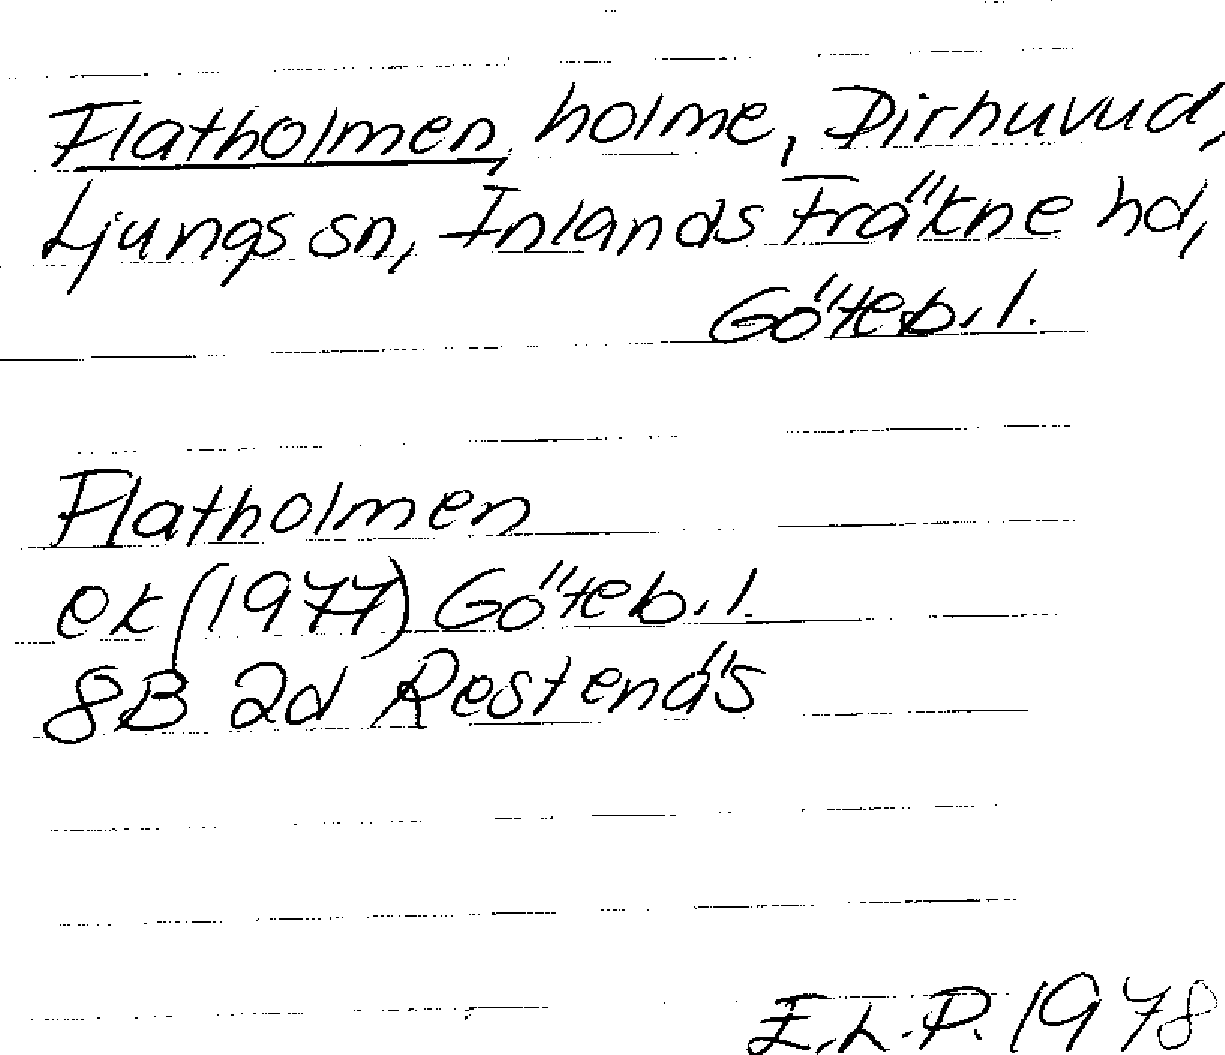 Flatholmen, holme, Dirhuvud,
Ljungs sn, Inlands Fräkne hd,
Göteb. l.
Flatholmen
ek (1977) Göteb. l.
8B 2d Restenäs
E.L.P. 1978